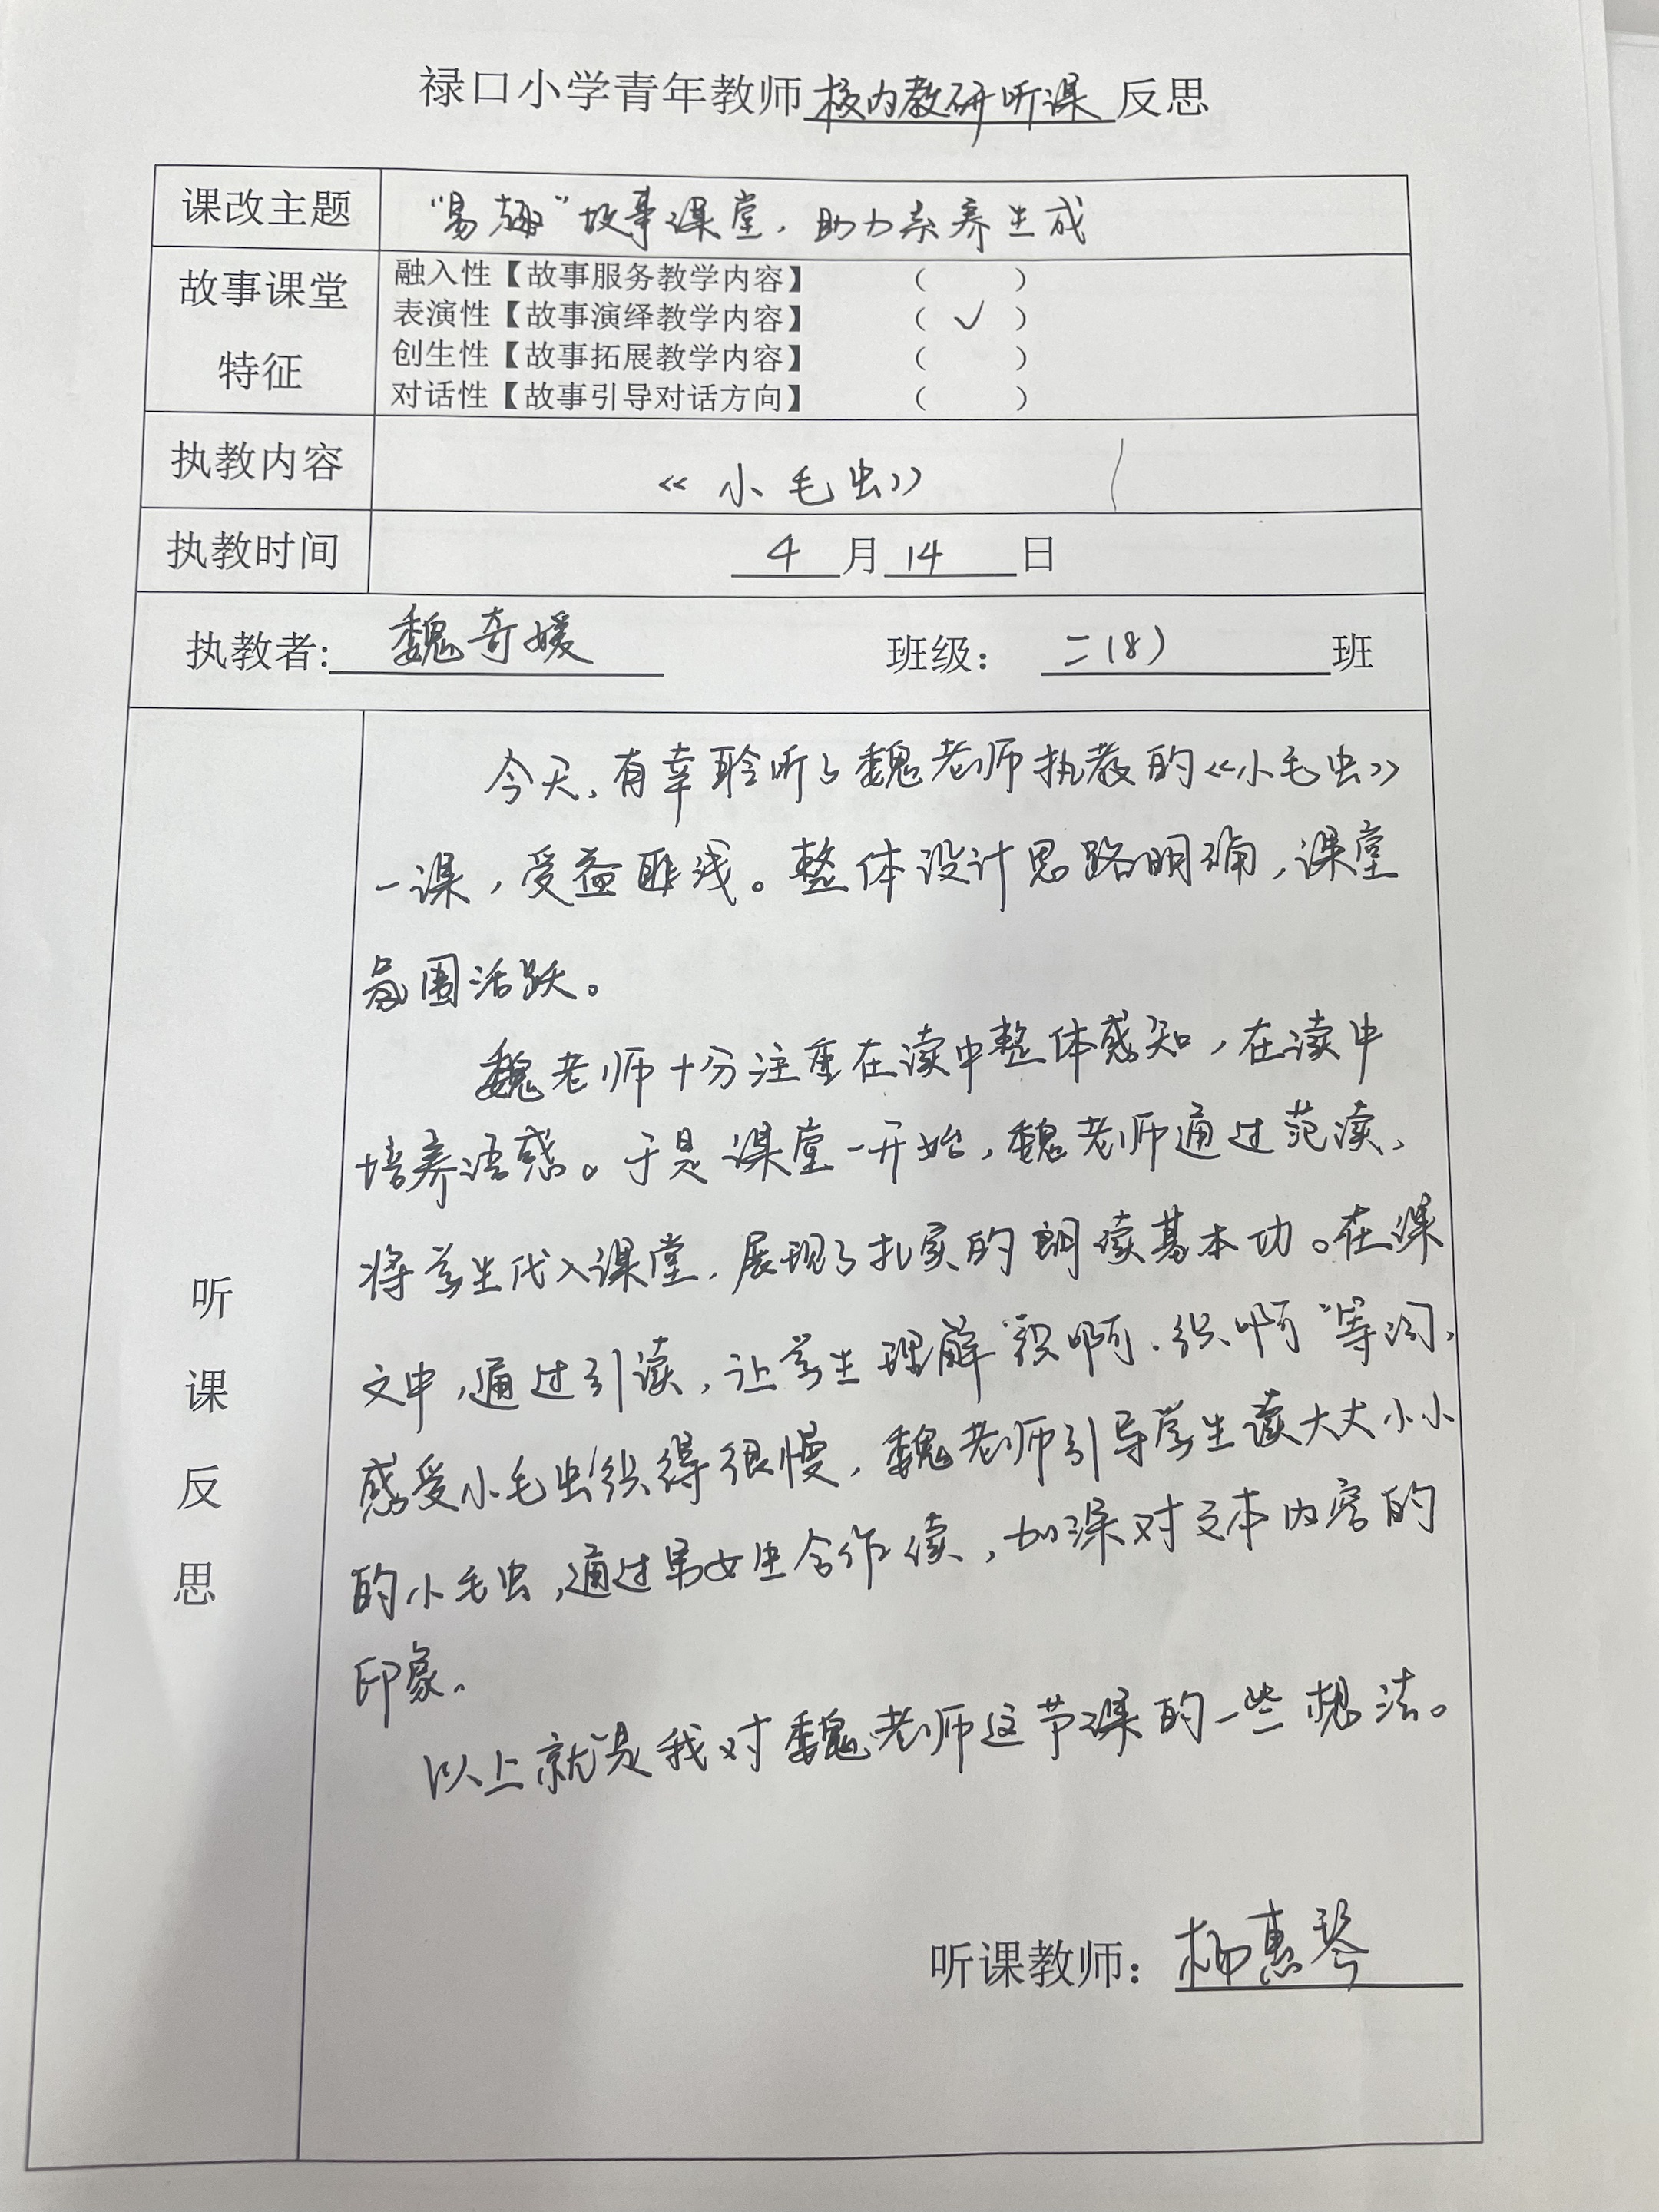 禄口小学青年教师校内教研听课反思
课改主题 “易趣”故事课堂，助力素养生成
故事课堂特征
融入性【故事服务教学内容】 （ ）
表演性【故事演绎教学内容】 （ ✓ ）
创生性【故事拓展教学内容】 （ ）
对话性【故事引导对话方向】 （ ）
执教内容 《小毛虫》
执教时间 4月14日
执教者: 魏奇媛 班级： 二（8）班
听课反思
今天，有幸聆听了魏老师执教的《小毛虫》
一课，受益匪浅。整体设计思路明确，课堂
氛围活跃。
魏老师十分注重在读中整体感知，在读中
培养语感。于是课堂一开始，魏老师通过范读、
将学生代入课堂，展现了扎实的朗读基本功。在课
文中，通过引读，让学生理解“织啊、织啊”等词，
感受小毛虫织得很慢，魏老师引导学生读大大小小
的小毛虫，通过男女生合作读，加深对文本内容的
印象。
以上就是我对魏老师这节课的一些想法。
听课教师： 杨惠琴